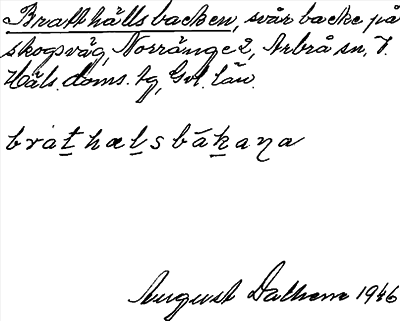 Bratthällsbacken, svår backe på
skogsväg, Norränge 2, Arbrå sn, V.
Häls. doms. tg, Gvl. län.
brathælsbákaŋa
August Dalhem 1946